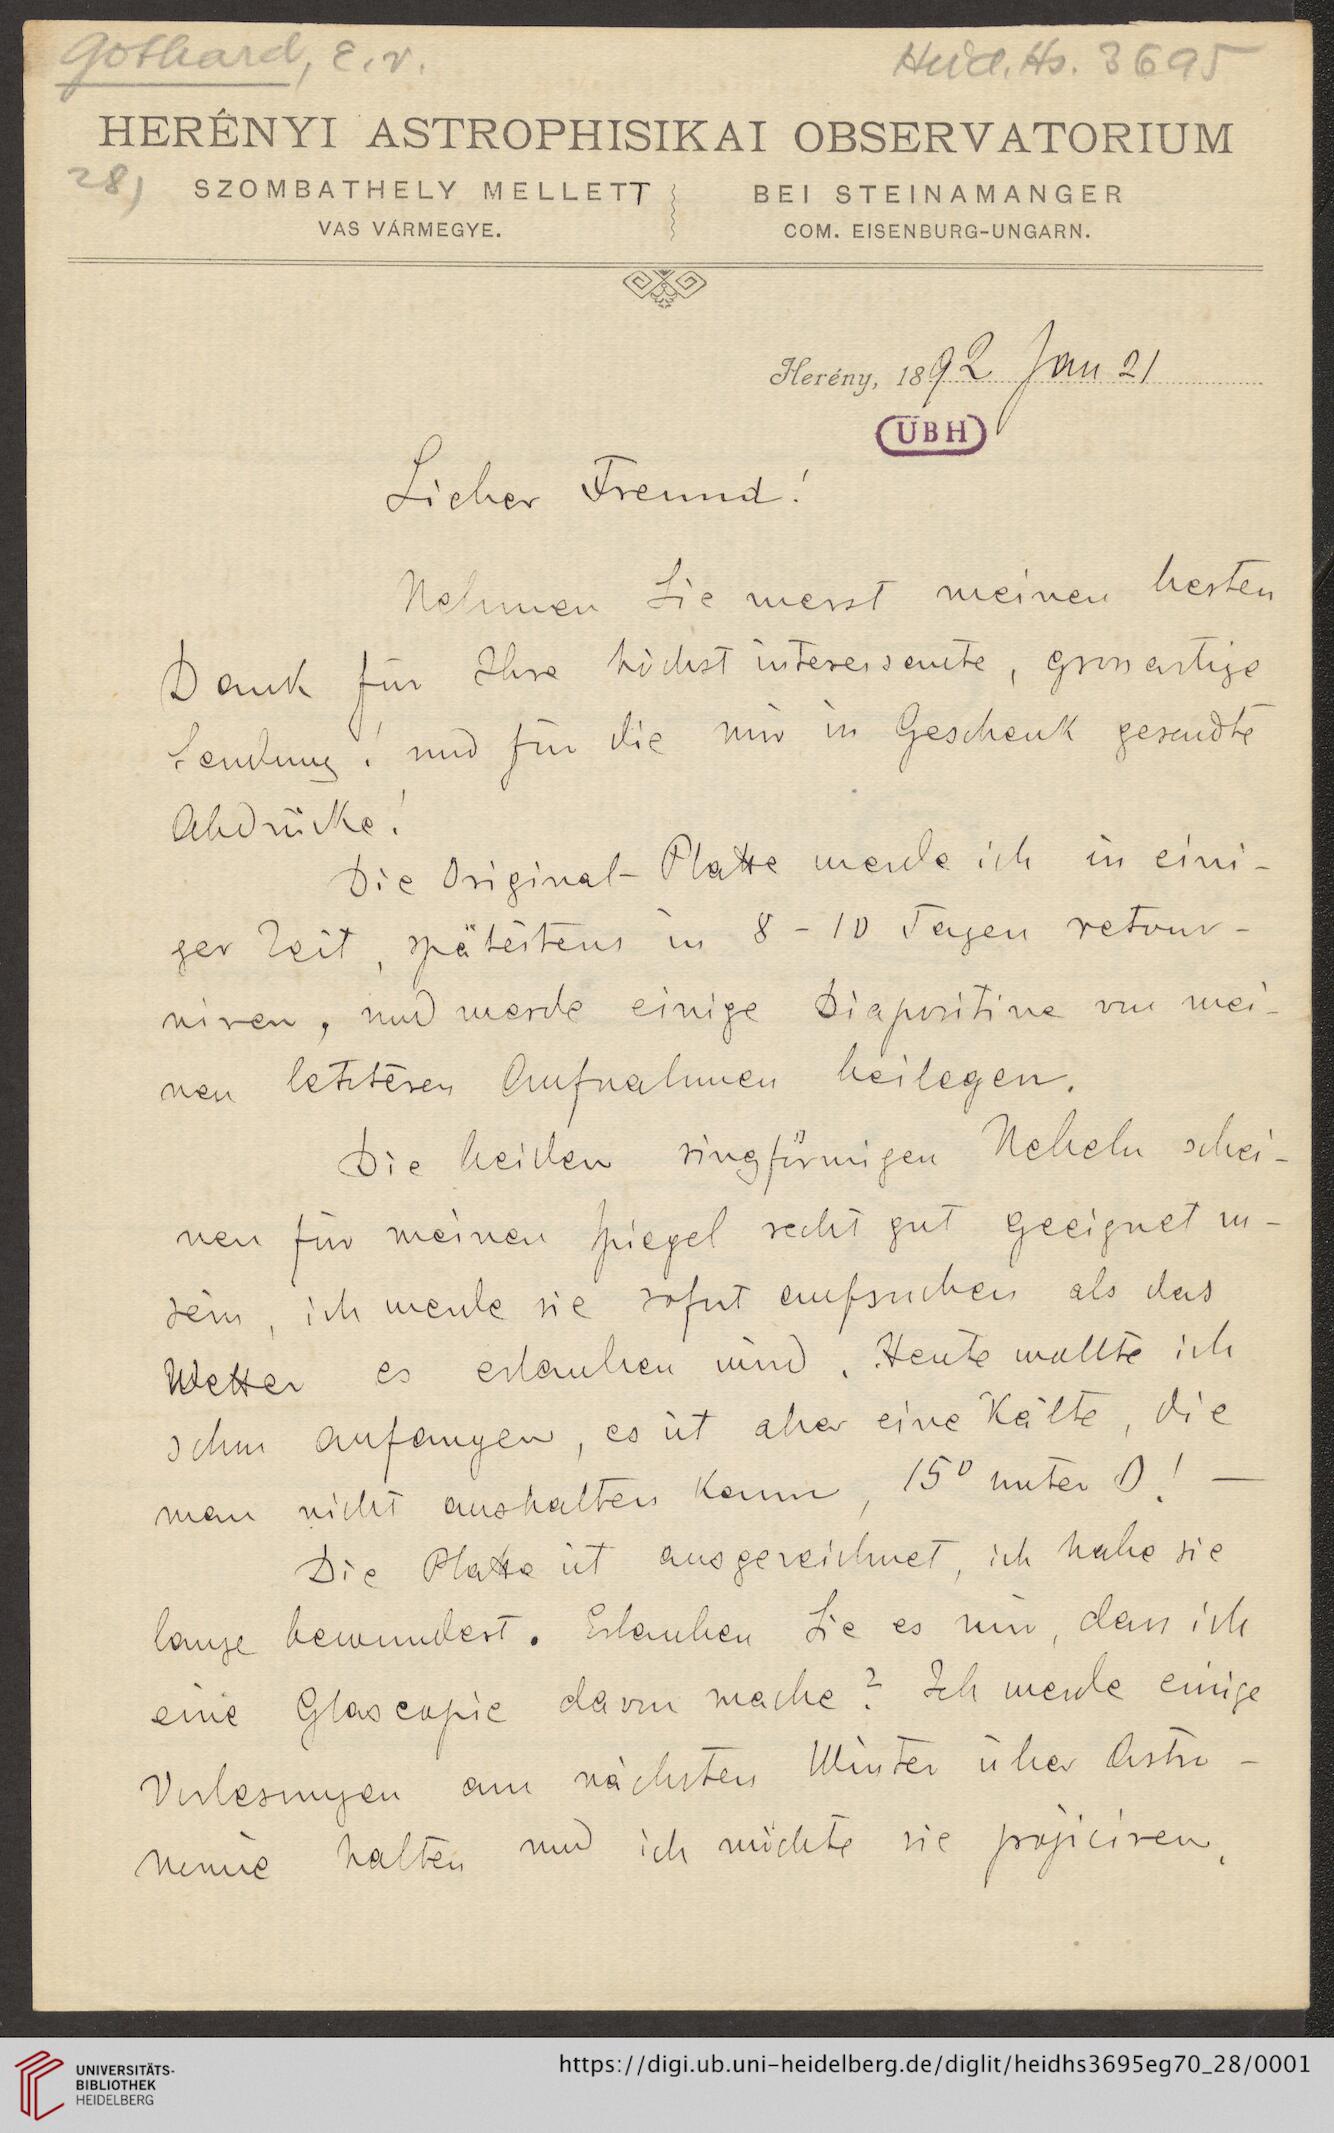 Gothard, E. v.
Heid. Hs. 3695
HERÉNYI ASTROPHISIKAI OBSERVATORIUM
28)
SZOMBATHELY MELLETT
BEI STEINAMANGER
VAS VÁRMEGYE.
COM. EISENBURG-UNGARN.
Herény, 1892 Jan 21
UBH
Lieber Freund!
Nehmen Sie zuerst meinen besten
Dank für Ihre höchst interessante, grossartige
Sendung! und für die mir in Geschenk gesandte
Abdrücke!
Die Original-Platte werde ich in eini-
ger Zeit, spätestens in 8-10 Tagen retour-
niren, und werde einige Diapositive von mei-
nen letzteren Aufnahmen beilegen.
Die beiden ringförmigen Nebeln schei-
nen für meinen Spiegel recht gut geeignet zu-
sein, ich werde sie sofort aufsuchen als das
Wetter es erlauben wird. Heute wollte ich
schon anfangen, es ist aber eine Kälte, die
man nicht aushalten kann, 15° unter 0! —
Die Platte ist ausgezeichnet, ich habe sie
lange bewundert. Erlauben Sie es mir, dass ich
eine Glascopie davon mache? Ich werde einige
Vorlesungen am nächsten Winter über Astro-
nomie halten und ich möchte sie projiciren.
UNIVERSITÄTS-
BIBLIOTHEK
HEIDELBERG
https://digi.ub.uni-heidelberg.de/diglit/heidhs3695eg70_28/0001